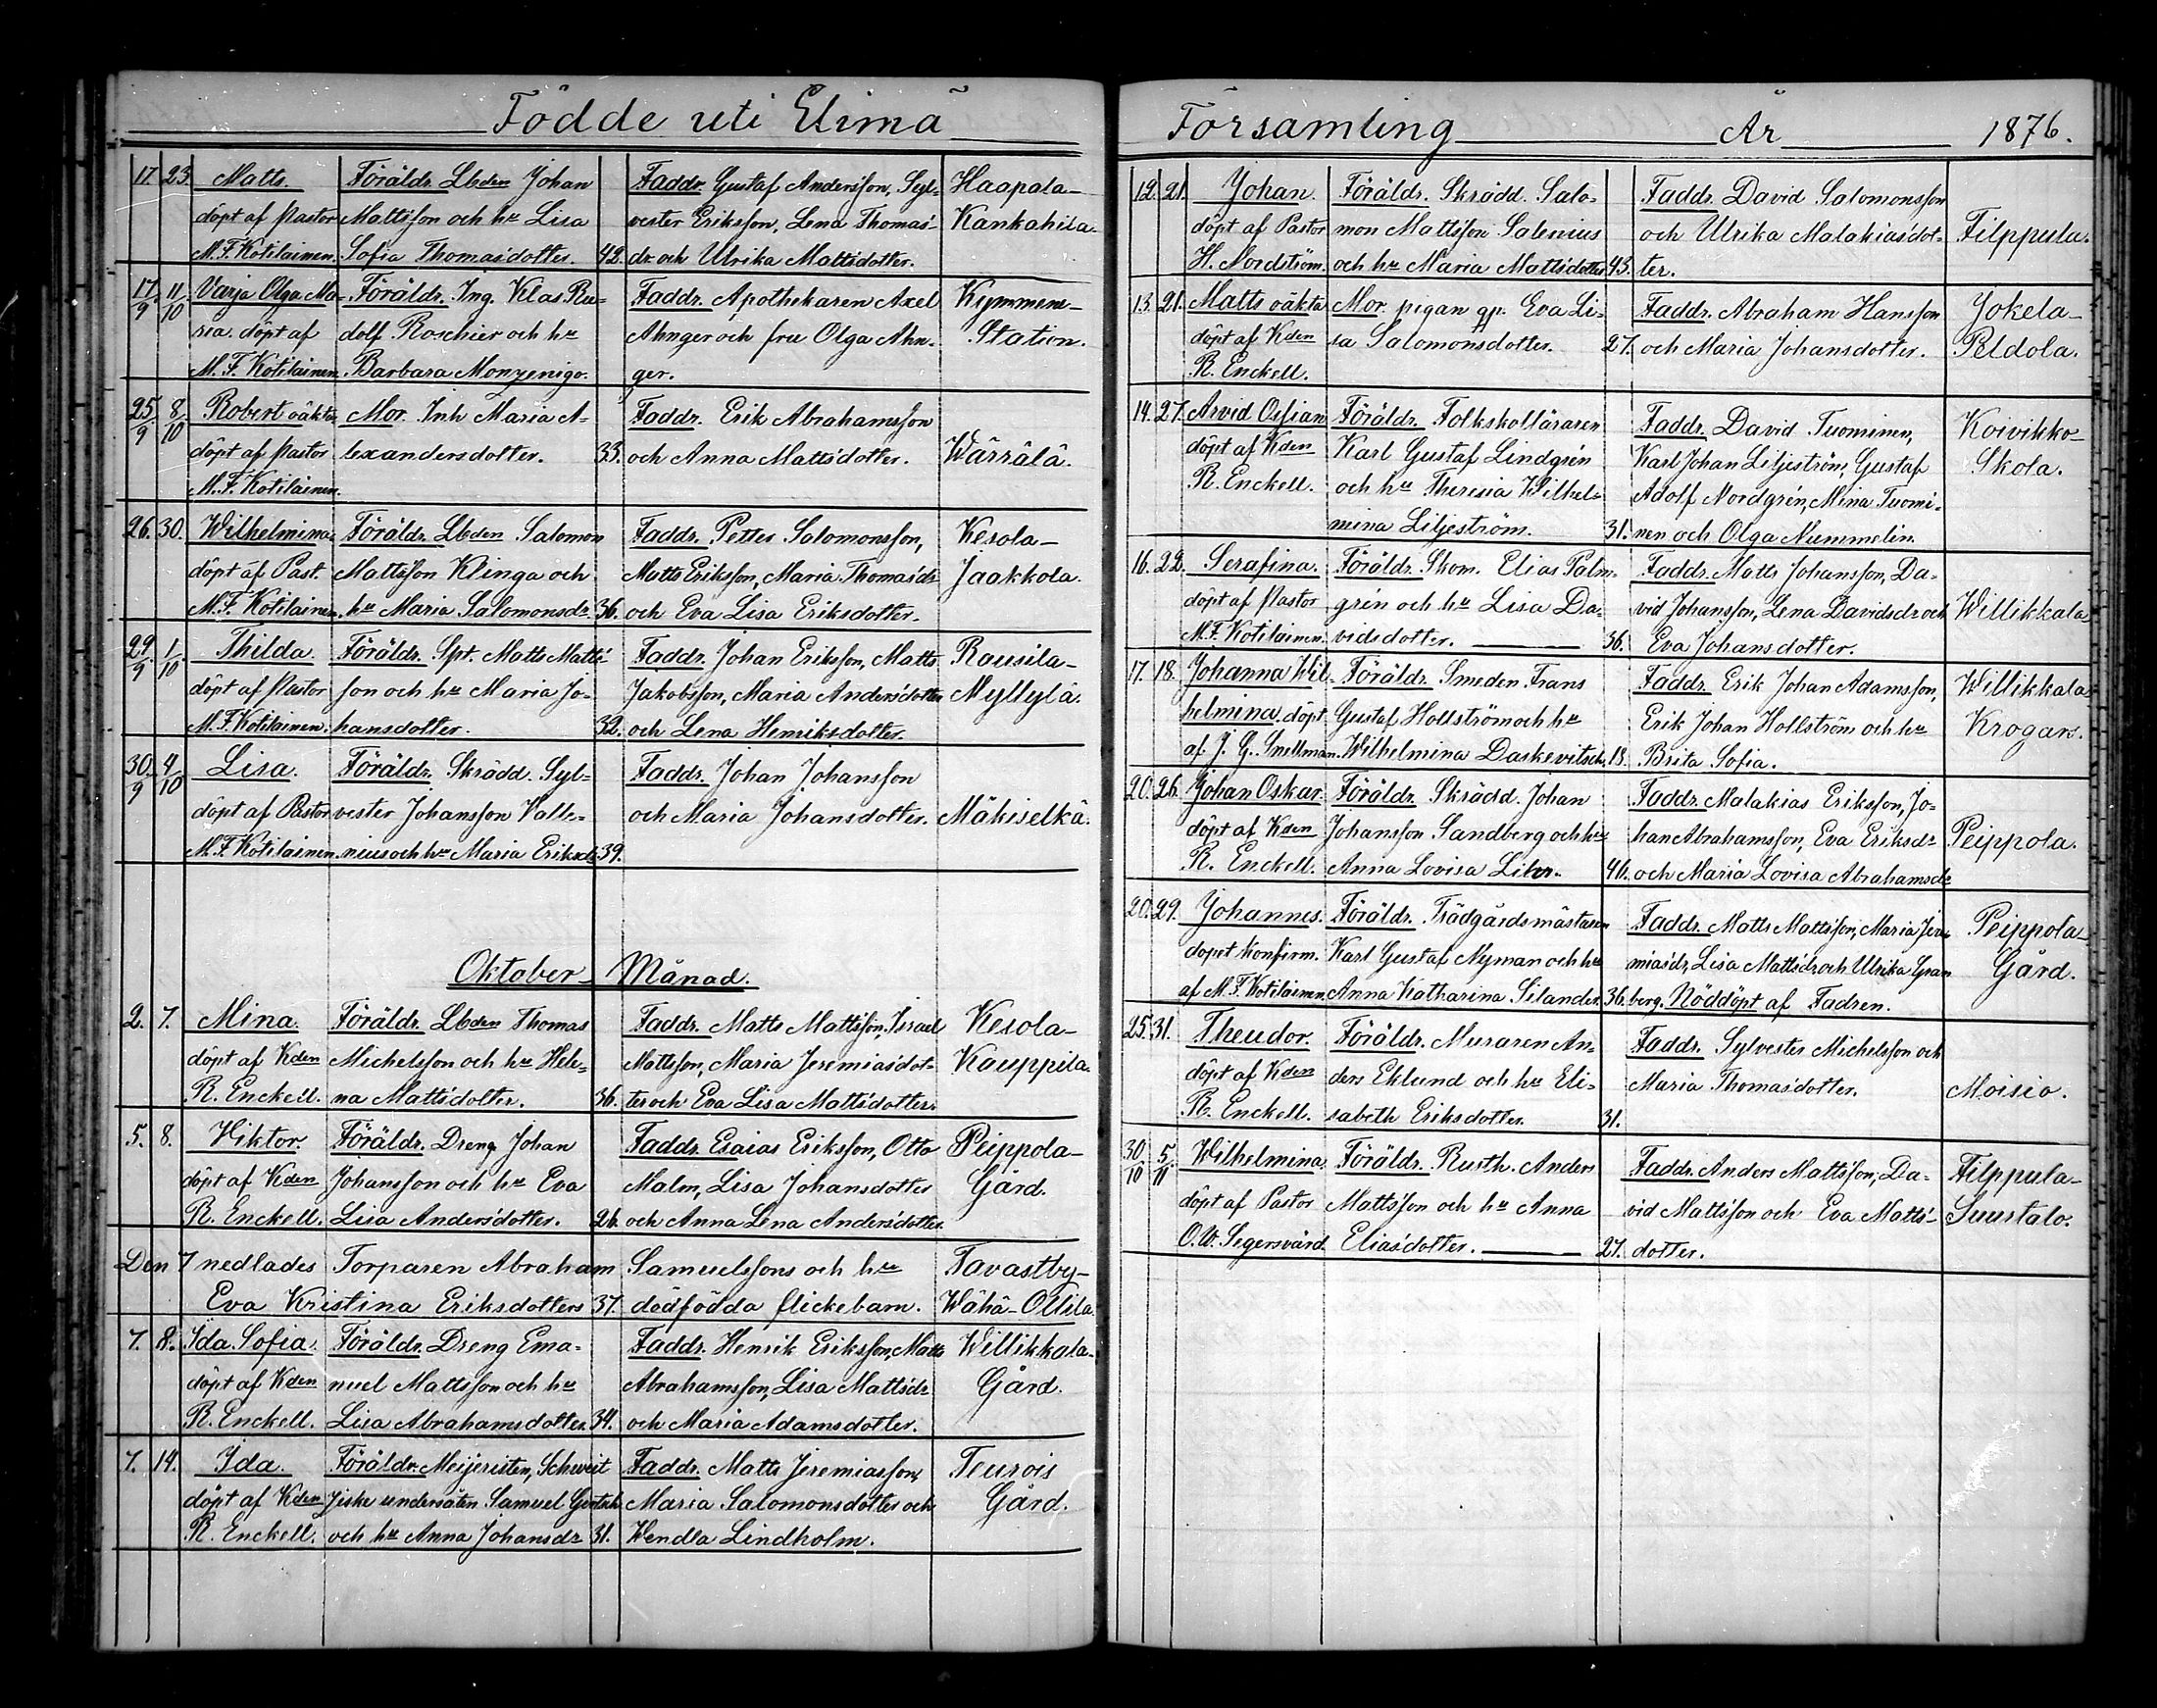 Födde uti Elimä
17. 23. Matts. Föräldr. Lbden Johan Faddr. Gustaf Andersson, Syl- Haapala-
döpt af Pastor Mattsson och hu Lisa vester Eriksson, Lena Thomas- Kankahila.
M.F. Kotilainen. Sofia Thomasdotter. 42. dr och Ulrika Mattsdotter.
17/9 11/10 Varja Olga Ma- Föräldr. Ing. Klas Ru- Faddr. Apothekaren Axel Kymmene-
ria. döpt af dolf Roschier och hu Ahnger och fru Olga Ahn- Station.
M.F. Kotilainen. Barbara Monzenigo. ger.
25/9 8/10 Robert oäkta Mor. Inh Maria A- Faddr. Erik Abrahamsson
döpt af Pastor lexandersdotter. 33. och Anna Mattsdotter. Wärrälä.
M.F. Kotilainen.
26. 30. Wilhelmina Föräldr. Lbden Salomon Faddr. Petter Salomonsson, Kesola-
döpt af Past. Mattsson Klinga och Matts Eriksson, Maria Thomasdr Jaakkola.
M.F. Kotilainen. hu Maria Salomonsdr 36. och Eva Lisa Eriksdotter.
29/9 1/10 Thilda. Föräldr. Spt. Matts Matts- Faddr. Johan Eriksson, Matts Rausila-
döpt af Pastor son och hu Maria Jo- Jakobsson, Maria Andersdotter Myllylä.
M.F. Kotilainen. hansdotter. 32. och Lena Henriksdotter.
30/9 4/10 Lisa. Föräldr. Skrädd. Syl- Faddr. Johan Johansson
döpt af Pastor vester Johansson Valle- och Maria Johansdotter. Mäkiselkä.
M.F. Kotilainen. nius och hu Maria Eriksdr 39.
Oktober Månad.
2. 7. Mina. Föräldr. Lbden Thomas Faddr. Matts Mattsson, Israel Kesola-
döpt af Kden Michelsson och hu Hele- Mattsson, Maria Jeremiasdot- Kauppila.
R. Enckell. na Mattsdotter. 36. ter och Eva Lisa Mattsdotter.
5. 8. Viktor. Föräldr. Dreng Johan Faddr. Esaias Eriksson, Otto Peippola-
döpt af Kden Johansson och hu Eva Malm, Lisa Johansdotter Gård.
R. Enckell. Lisa Andersdotter. 26. och Anna Lena Andersdotter.
Den 7 nedlades Torparen Abraham Samuelssons och hu Tavastby-
Eva Kristina Eriksdotters 37. dödfödda flickebarn. Wähä-Ollila.
7. 8. Ida Sofia. Föräldr. Dreng Ema- Faddr. Henrik Eriksson, Matts Willikkala-
döpt af Kden nuel Mattsson och hu Abrahamsson, Lisa Mattsdr Gård.
R. Enckell. Lisa Abrahamsdotter 34. och Maria Adamsdotter.
7. 14. Ida. Föräldr. Meijeristen, Schweit Faddr. Matts Jeremiasson, Teurois
döpt af Kden ziske undersåten Samuel Maria Salomonsdotter och Gård.
R. Enckell. och hu Anna Johansdr 31. Wendla Lindholm.
Församling År 1876.
12. 21. Johan. Föräldr. Skrädd. Salo- Faddr. David Salomonsson
döpt af Pastor mon Mattsson Salenius och Ulrika Malakiasdot- Filppula.
H. Nordström. och hu Maria Mattsdotter 43. ter.
13. 21. Matts oäkta Mor. pigan qp. Eva Li- Faddr. Abraham Hansson Jokela-
döpt af Kden sa Salomonsdotter. 27. och Maria Johansdotter. Peldola.
R. Enckell.
14. 27. Arvid Ossian Föräldr. Folkskolläraren Faddr. David Tuominen, Koivikko-
döpt af Kden Karl Gustaf Lindgrén Karl Johan Liljeström, Gustaf Skola.
R. Enckell. och hu Theresia Wilhel- Adolf Nordgrén, Mina Tuomi-
mina Liljeström. 31. nen och Olga Nummelin.
16. 22. Serafina. Föräldr. Skom. Elias Palm- Faddr. Matts Johansson, Da-
döpt af Pastor grén och hu Lisa Da- vid Johansson, Lena Davidsdr och Willikkala
M.F. Kotilainen. vidsdotter. 36. Eva Johansdotter.
17. 18. Johanna Wil- Föräldr. Smeden Frans Faddr. Erik Johan Adamsson, Willikkala
helmina döpt Gustaf Hollström och hu Erik Johan Hollström och hu Krogars.
af J. G. Snellman. Wilhelmina Daskevitsch. 18. Brita Sofia.
20. 26. Johan Oskar. Föräldr. Skrädd. Johan Faddr. Malakias Eriksson, Jo-
döpt af Kden Johansson Sandberg och hu han Abrahamsson, Eva Eriksdr Peippola.
R. Enckell. Anna Lovisa 40. och Maria Lovisa Abrahamsdr
20. 29. Johannes. Föräldr. Trädgårdsmästaren Faddr. Matts Mattsson, Maria Jere- Peippola-
dopet konfirm. Karl Gustaf Nyman och hu miasdr, Lisa Mattsdr och Ulrika Gran Gård.
af M.F. Kotilainen. Anna Katharina Silander. 36. berg. Nöddöpt af Fadren.
25. 31. Theudor. Föräldr. Muraren An- Faddr. Sylvester Michelsson och
döpt af Kden ders Eklund och hu Eli- Maria Thomasdotter. Moisio.
R. Enckell. sabeth Eriksdotter. 31.
30/10 5/11 Wilhelmina Föräldr. Rusth. Anders Faddr. Anders Mattsson, Da- Filppula-
döpt af Pastor Mattsson och hu Anna vid Mattsson och Eva Matts- Suurtalo.
O.W. Segersvärd. Eliasdotter. 27. dotter.